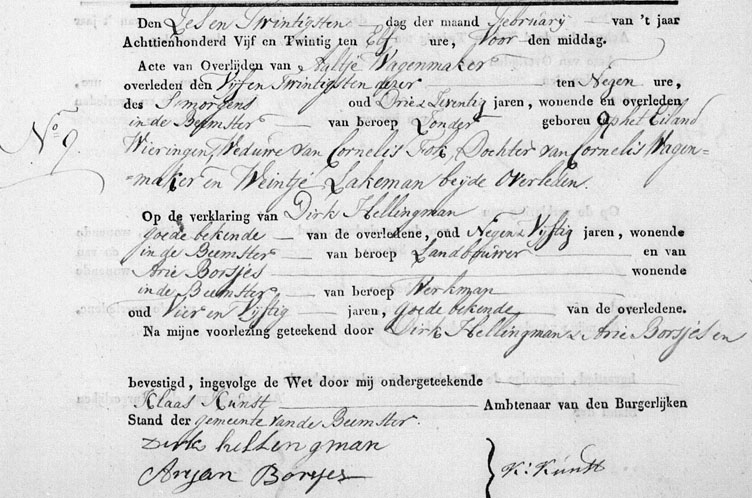 Den Zes en Twintigsten dag der maand February — van 't jaar
Achttienhonderd Vijf en Twintig ten Elf ure, Voor den middag.
Acte van Overlijden van Aaltje Wagenmaker
overleden den Vijfen Twintigsten dezer — ten Negen ure,
des S'morgens oud Drie & Zeventig jaren, wonende en overleden
in de Beemster — van beroep Zonder geboren Op het Eiland
No 9
Wieringen, Weduwe van Cornelis Tok, Dochter van Cornelis Wagen-
-maker en Weintje Lakeman beijde Overleden.
Op de verklaring van Dirk Hellingman
goede bekende — van de overledene, oud Negen & Vijftig jaren, wonende
in de Beemster — van beroep Landbouwer — en van
Arie Borstjes — wonende
in de Beemster — van beroep Werkman —
oud Vier en Vijftig — jaren, goede bekende — van de overledene.
Na mijne voorlezing geteekend door Dirk Hellingman & Arie Borstjes en
bevestigd, ingevolge de Wet door mij ondergeteekende
Klaas Kunst — Ambtenaar van den Burgerlijken
Stand der gemeente van de Beemster.
Dirk hellengman
Arjan Borsjes
Ks. Kunst